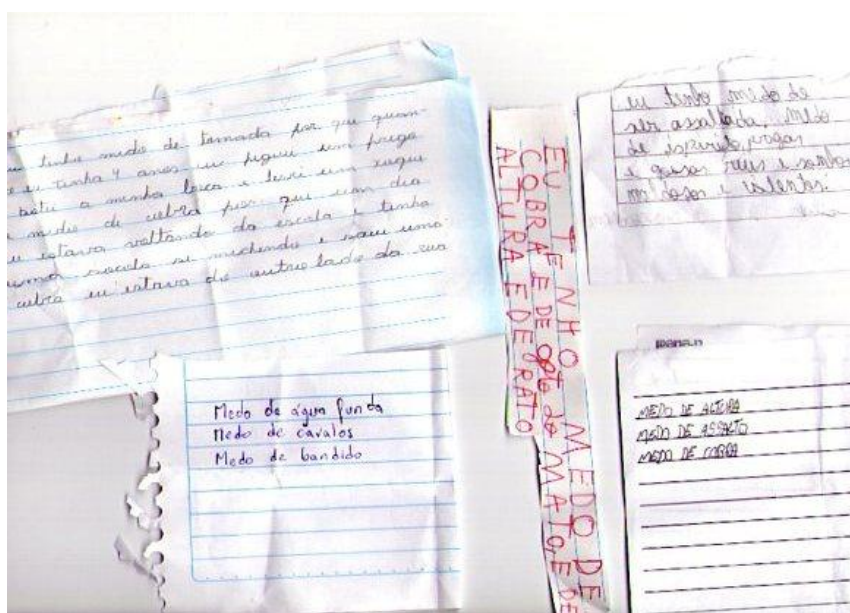 eu tinha medo de tomada por que quan-
eu tinha 4 anos eu peguei um prego
a minha e levei um
medo de cobra por que um dia
eu estava voltando da escola e tinha
uma sacola se mechendo e saiu uma
cobra eu estava do outro lado da rua
Medo de água funda
Medo de cavalos
Medo de bandido
EU TENHO MEDO DE
COBRA E DE DO MATO, E DE
ALTURA E DE RATO
eu tenho medo de
ser assaltada, medo
de
e
MEDO DE ALTURA
MEDO DE ASSALTO
MEDO DE COBRA